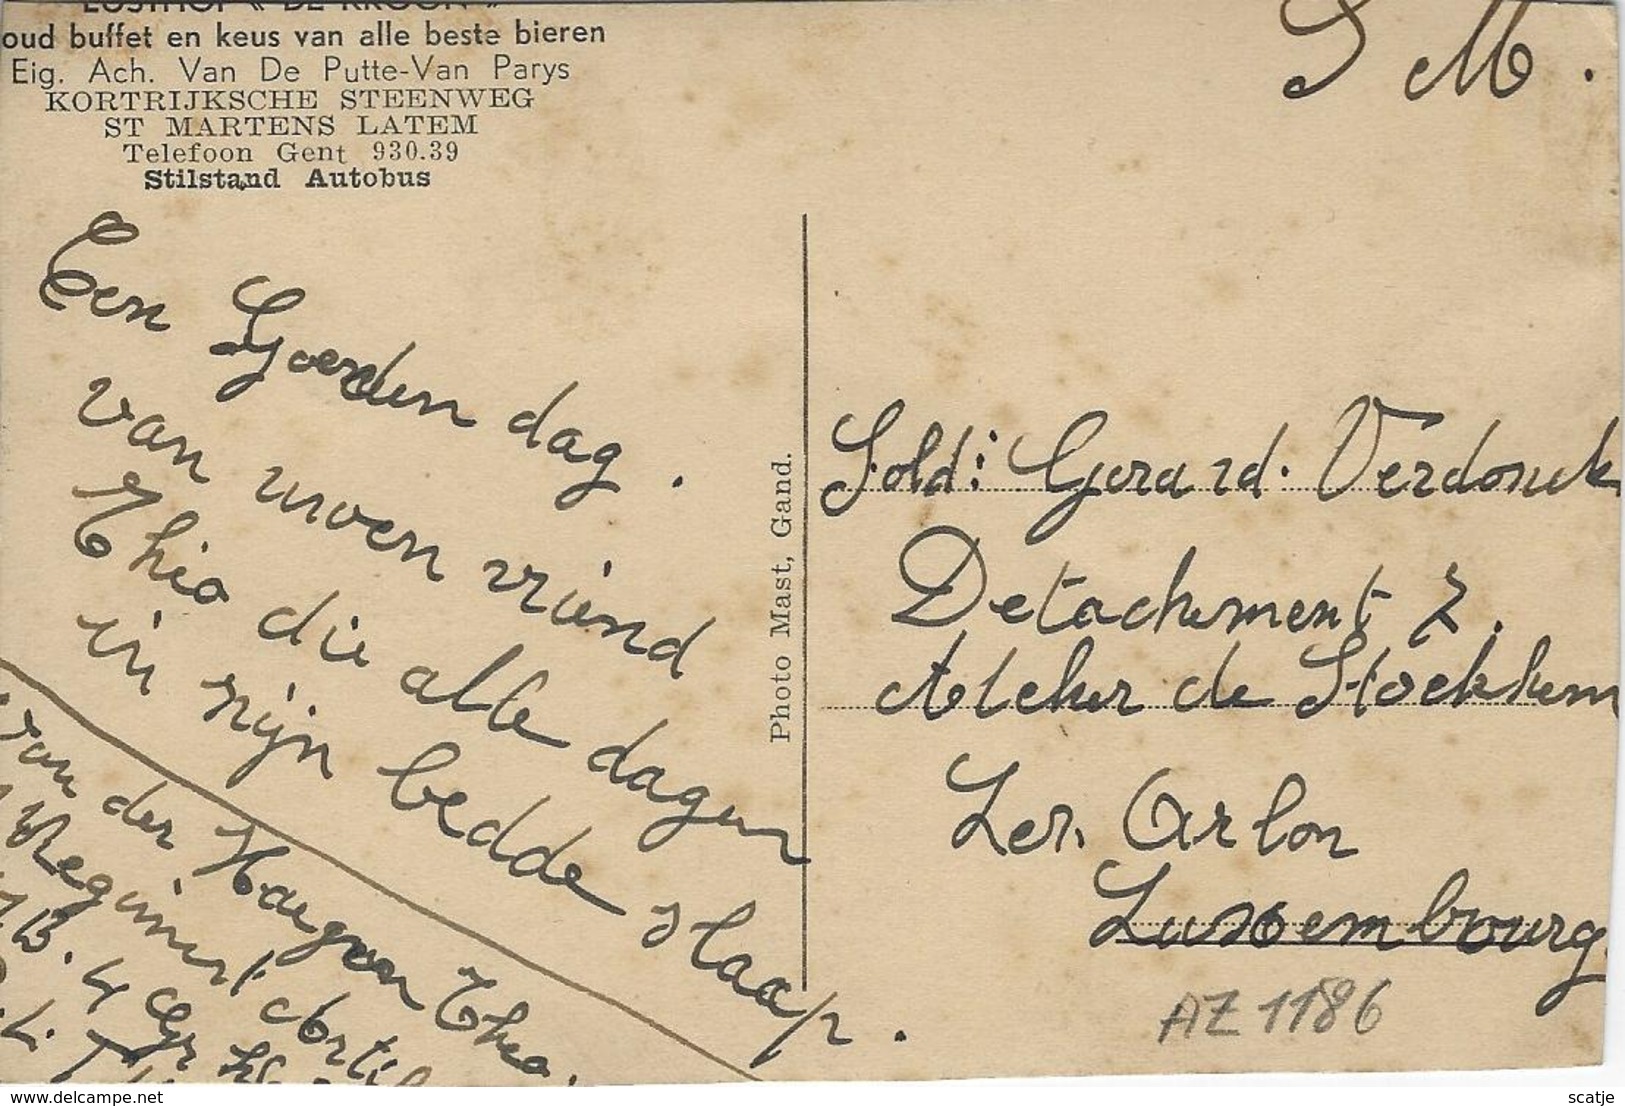 LUSTHOF « DE KROON »
oud buffet en keus van alle beste bieren
Eig. Ach. Van De Putte-Van Parys
KORTRIJKSCHE STEENWEG
ST MARTENS LATEM
Telefoon Gent 930.39
Stilstand Autobus
S M.
Een Goeden dag.
van uwen vriend
Thio die alle dagen
in zijn bedde slaap.
van der Haegen Thio.
Regiment Artil
4 Gr
Photo Mast, Gand.
Sold: Gerard. Verdonck
Detachement 2.
Atelier de Stockhem
Lez. Arlon
Luxembourg
AZ 1186
www.delcampe.net
scatje